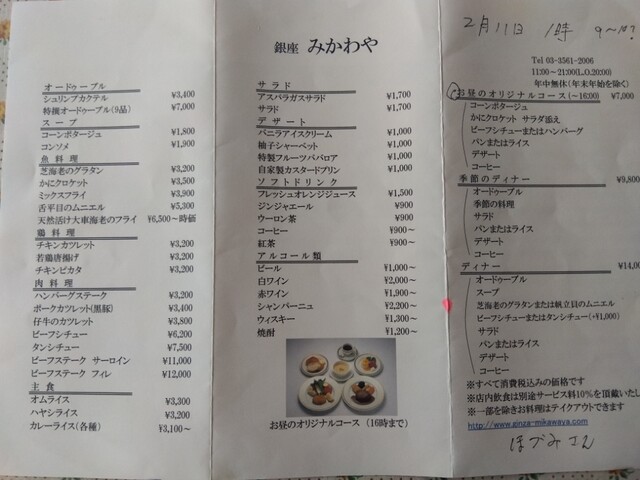 オードゥーブル
シュリンプカクテル ¥3,400
特撰オードゥーブル(9品) ¥7,000
スープ
コーンポタージュ ¥1,800
コンソメ ¥1,900
魚料理
芝海老のグラタン ¥3,200
かにクロケット ¥3,500
ミックスフライ ¥3,900
舌平目のムニエル ¥5,300
天然活け大車海老のフライ ¥6,500～時価
鶏料理
チキンカツレット ¥3,200
若鶏唐揚げ ¥3,200
チキンピカタ ¥3,200
肉料理
ハンバーグステーク ¥3,200
ポークカツレット(黒豚) ¥3,400
仔牛のカツレット ¥3,800
ビーフシチュー ¥6,200
タンシチュー ¥7,500
ビーフステーク サーロイン ¥11,000
ビーフステーク フィレ ¥12,000
主食
オムライス ¥3,300
ハヤシライス ¥3,200
カレーライス(各種) ¥3,100～
銀座 みかわや
サラド
アスパラガスサラド ¥1,700
サラド ¥1,700
デザート
バニラアイスクリーム ¥1,000
柚子シャーベット ¥1,000
特製フルーツババロア ¥1,000
自家製カスタードプリン ¥1,000
ソフトドリンク
フレッシュオレンジジュース ¥1,500
ジンジャエール ¥900
ウーロン茶 ¥900
コーヒー ¥900～
紅茶 ¥900～
アルコール類
ビール ¥1,000～
白ワイン ¥2,000～
赤ワイン ¥1,900～
シャンパーニュ ¥2,200～
ウィスキー ¥1,300～
焼酎 ¥1,200～
お昼のオリジナルコース (16時まで)
2月11日 1時 9~10?
Tel 03-3561-2006
11:00～21:00(L.O.20:00)
年中無休(年末年始を除く)
お昼のオリジナルコース(～16:00) ¥7,000
コーンポタージュ
かにクロケット サラダ添え
ビーフシチューまたはハンバーグ
パンまたはライス
デザート
コーヒー
季節のディナー ¥9,800
オードゥーブル
季節の料理
サラド
パンまたはライス
デザート
コーヒー
ディナー ¥14,00
オードゥーブル
スープ
芝海老のグラタンまたは帆立貝のムニエル
ビーフシチューまたはタンシチュー(+¥1,000)
サラド
パンまたはライス
デザート
コーヒー
※すべて消費税込みの価格です
※店内飲食は別途サービス料10%を頂戴いたし
※一部を除きお料理はテイクアウトできます
http://www.ginza-mikawaya.com
ほづみさん